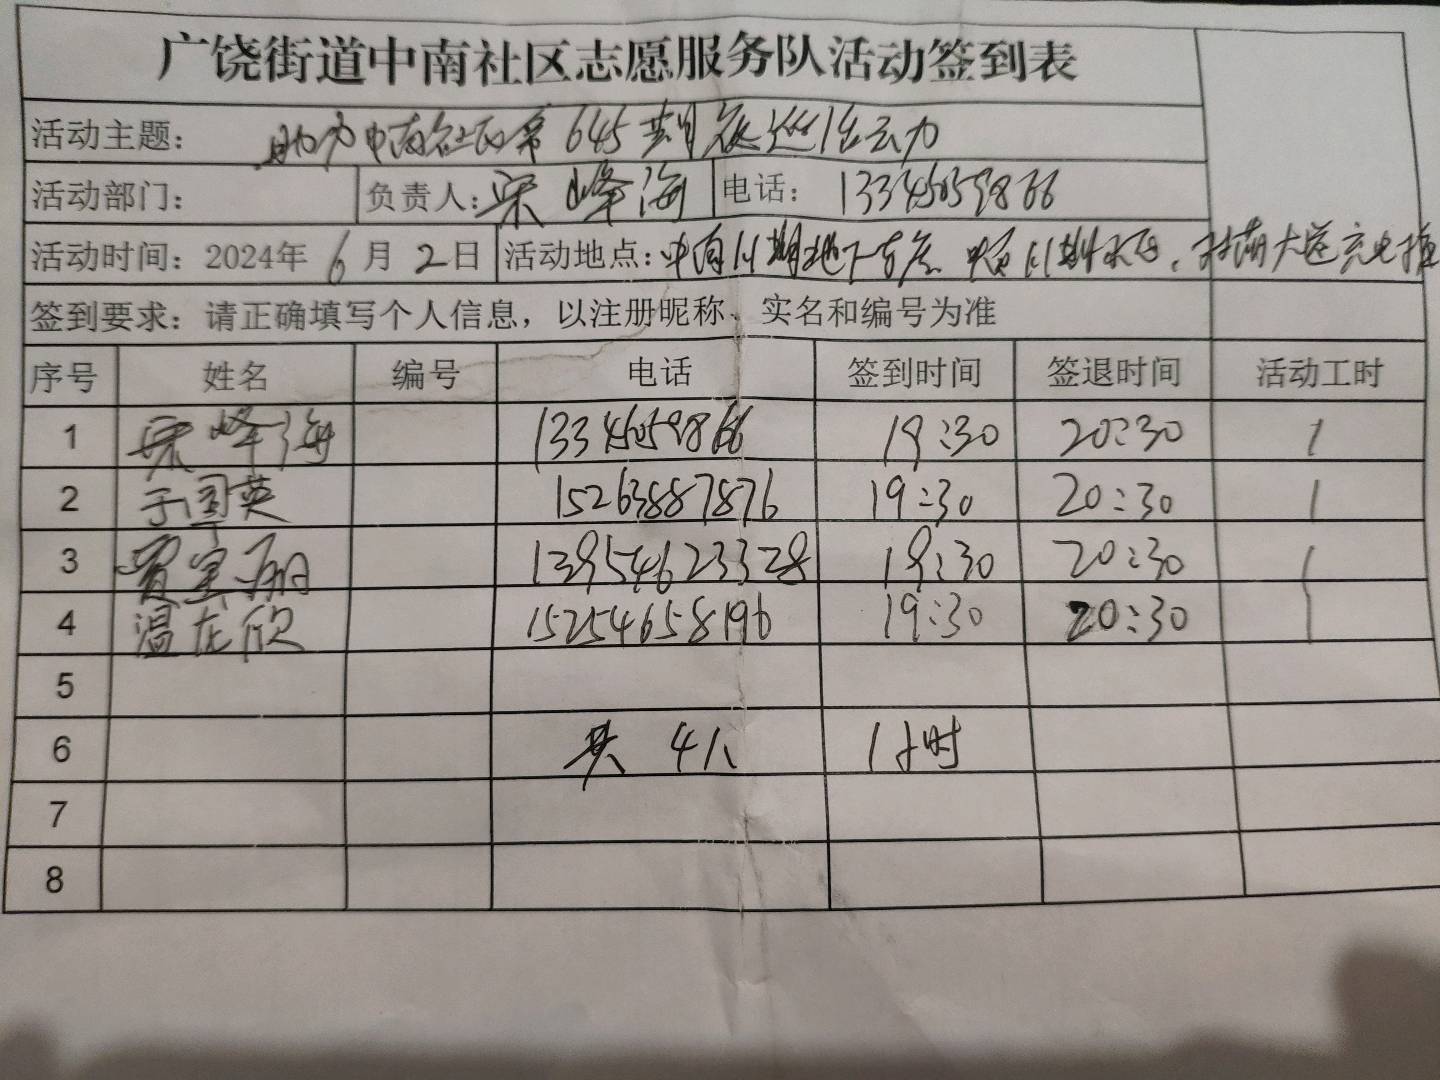 广饶街道中南社区志愿服务队活动签到表
活动主题： 助力中南社区第645期夜巡活动
活动部门： 负责人：宋峰海 电话：13345059866
活动时间：2024年6月2日 活动地点：中南 期地下车库
签到要求：请正确填写个人信息，以注册昵称、实名和编号为准
序号 姓名 编号 电话 签到时间 签退时间 活动工时
1 宋峰海 13345059866 19:30 20:30 1
2 于国英 15263887876 19:30 20:30 1
3 贾宝丽 13954623328 19:30 20:30 1
4 温在欣 15254658196 19:30 20:30 1
5
6 共4人 1小时
7
8